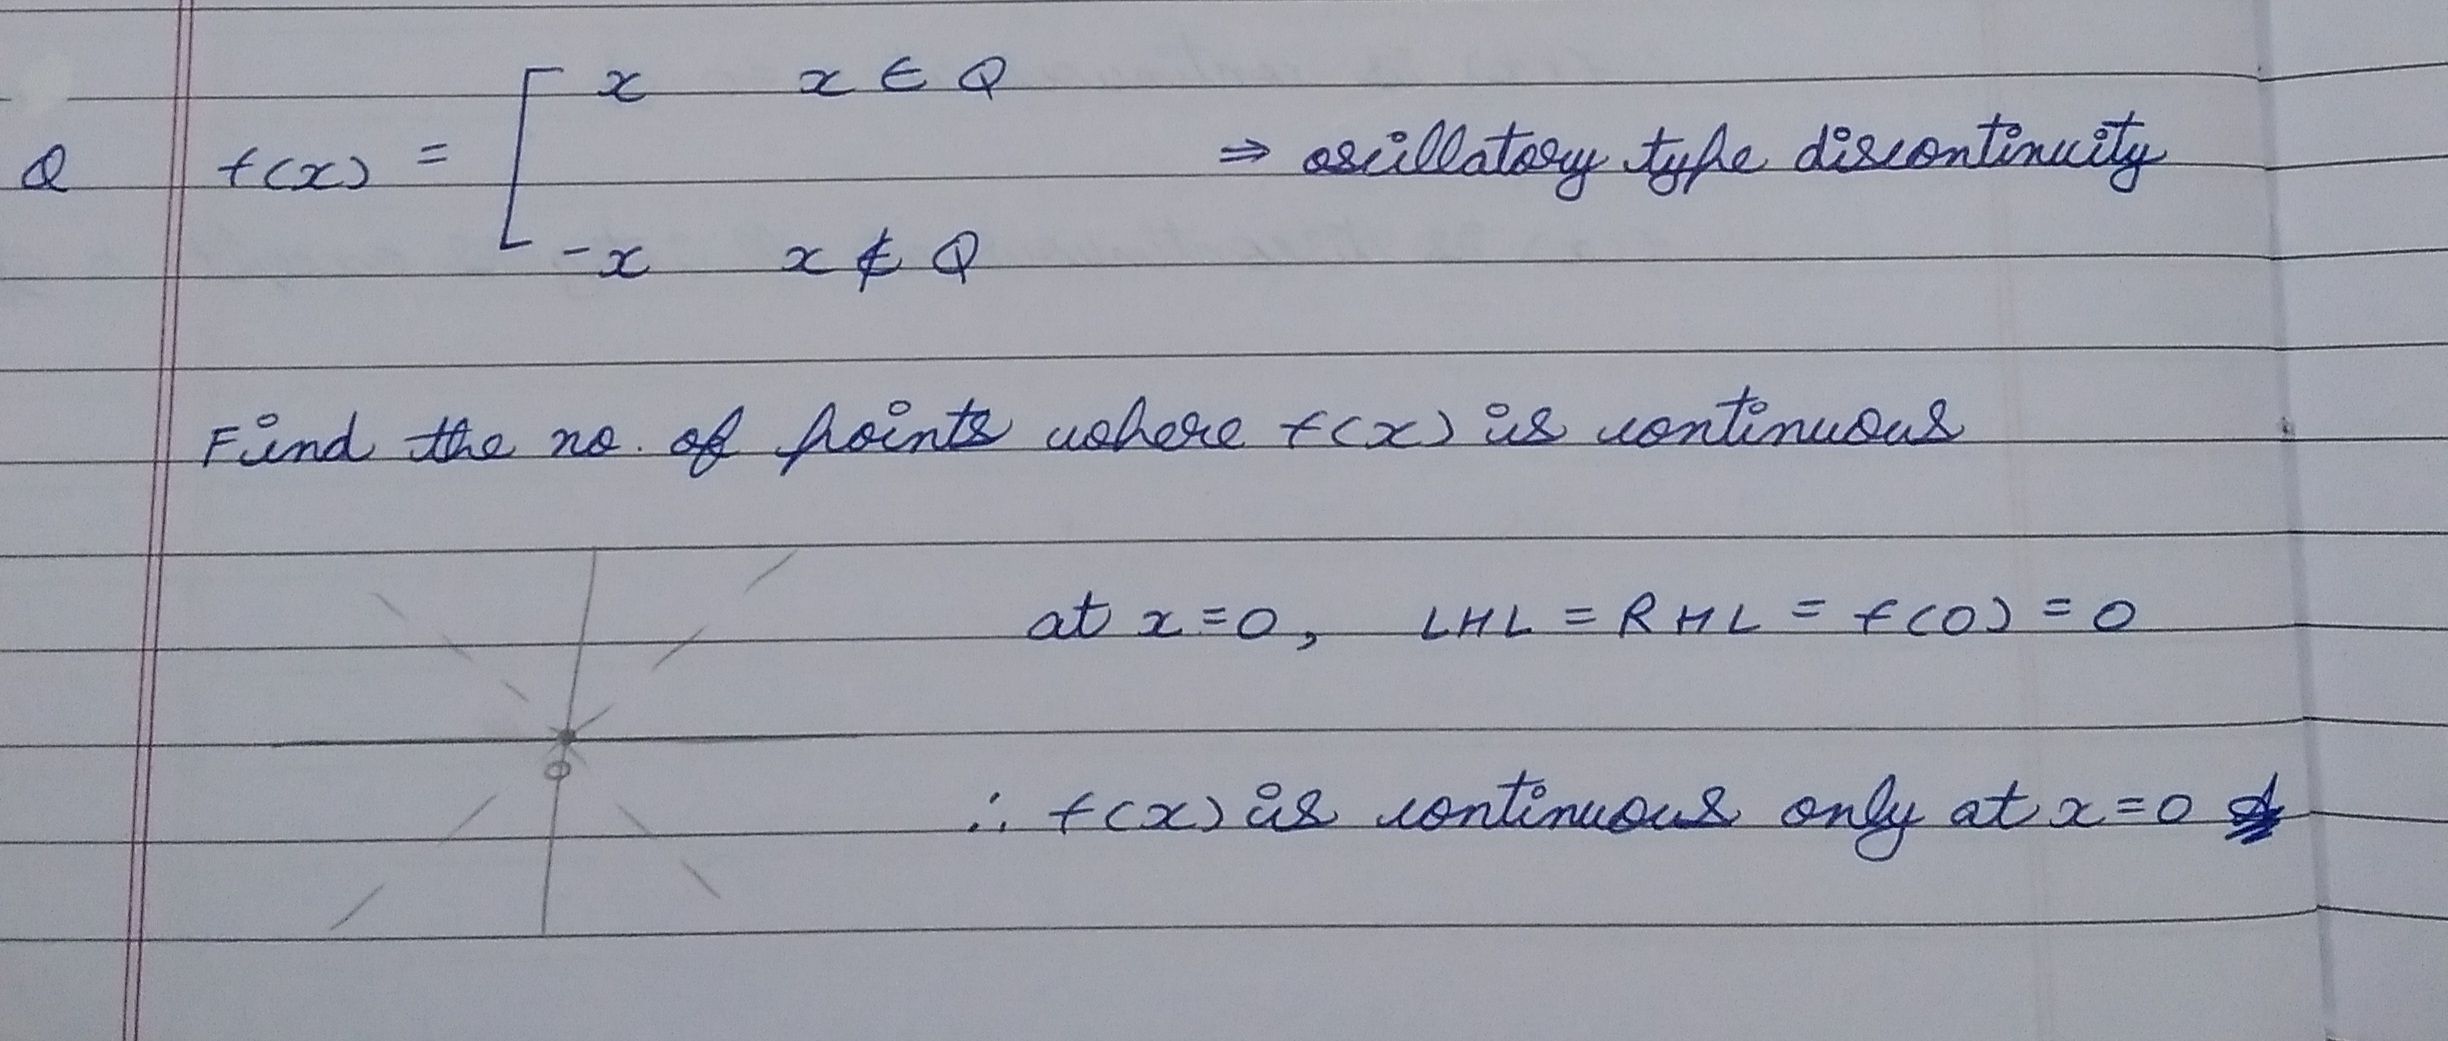 x x ∈ Q
Q f(x) = ⇒ oscillatory type discontinuity
-x x ∉ Q
Find the no. of points where f(x) is continuous
at x=0, LHL = RHL = f(0) = 0
0
∴ f(x) is continuous only at x=0